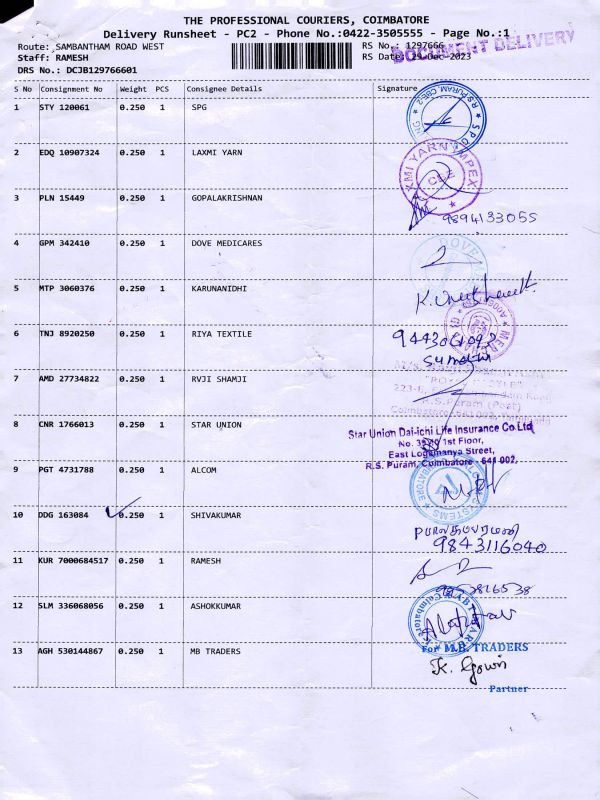 THE PROFESSIONAL COURIERS, COIMBATORE
Delivery Runsheet - PC2 - Phone No.:0422-3505555 - Page No.:1
Route: SAMBANTHAM ROAD WEST RS No.: 1297666
DOCUMENT DELIVERY
Staff: RAMESH RS Date: 29-Dec-2023
DRS No.: DCJB129766601
S No Consignment No Weight PCS Consignee Details Signature
1 STY 120061 0.250 1 SPG
2 EDQ 10907324 0.250 1 LAXMI YARN
3 PLN 15449 0.250 1 GOPALAKRISHNAN
9894133055
4 GPM 342410 0.250 1 DOVE MEDICARES
5 MTP 3060376 0.250 1 KARUNANIDHI
6 TNJ 8920250 0.250 1 RIYA TEXTILE
7 AMD 27734822 0.250 1 RVJI SHAMJI
R.S.Puram (Post)
8 CNR 1766013 0.250 1 STAR UNION
Star Union Dai-ichi Life Insurance Co Ltd
1st Floor,
East Logamanya Street,
R.S. Puram, Coimbatore - 641 002.
9 PGT 4731788 0.250 1 ALCOM
10 DDG 163084 0.250 1 SHIVAKUMAR
9843116040
11 KUR 7000684517 0.250 1 RAMESH
12 SLM 336068056 0.250 1 ASHOKKUMAR
13 AGH 530144867 0.250 1 MB TRADERS
For M.B. TRADERS
Partner